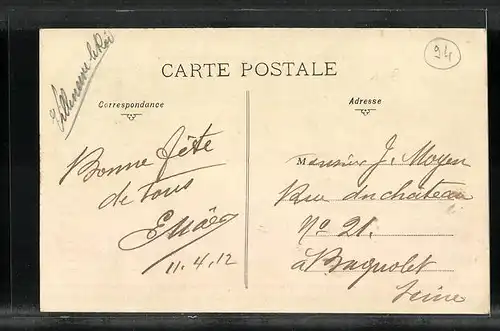 Villeneuve le Roi
94
CARTE POSTALE
Correspondance
Adresse
Bonne fête
de tous
11.4.12
Monsieur J. Moyen
Rue du château
Nº 21.
à Bagnolet
Seine